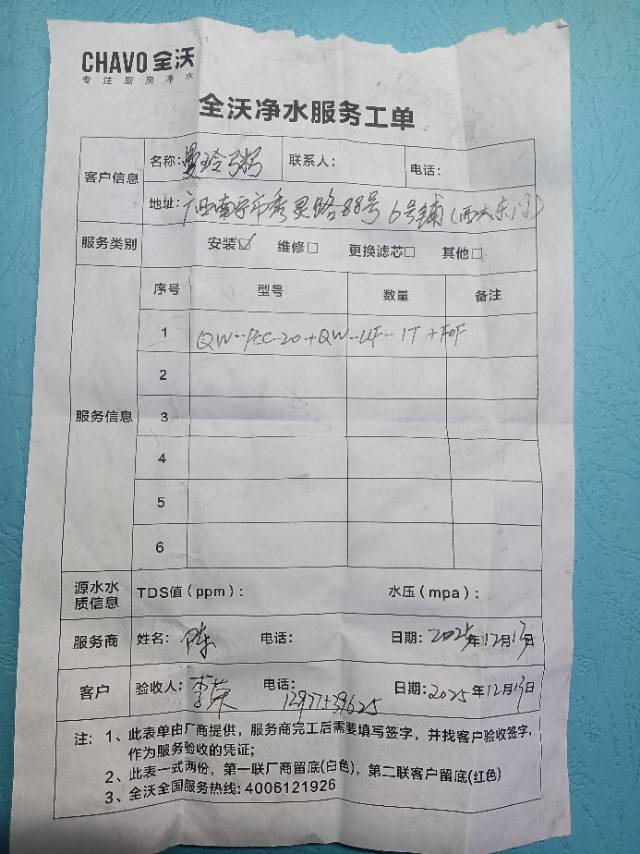 CHAVO 全沃
专注厨房净水
全沃净水服务工单
客户信息
名称: 曼玲粥 联系人: 电话:
地址: 广西南宁市秀灵路88号6号铺(西大东门)
服务类别 安装☑ 维修□ 更换滤芯□ 其他□
服务信息
序号 型号 数量 备注
1 QW--PCC-20+QW--UF--1T+FOF
2
3
4
5
6
源水水质信息 TDS值(ppm): 水压(mpa):
服务商 姓名: 陈 电话: 日期: 2025年12月13日
客户 验收人: 李荣 电话: 日期: 2025年12月13日
注: 1、此表单由厂商提供，服务商完工后需要填写签字，并找客户验收签字，
作为服务验收的凭证;
2、此表一式两份，第一联厂商留底(白色)，第二联客户留底(红色)
3、全沃全国服务热线: 4006121926